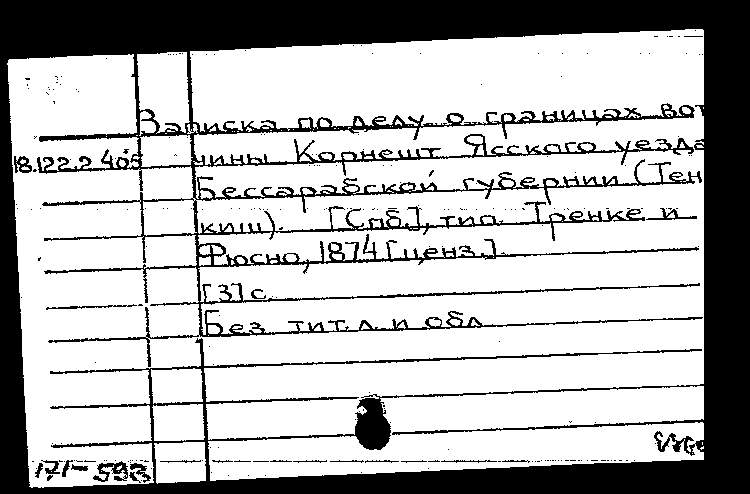 Записка по делу о границах вот
18.122.2.405 чины Корнешт Ясского уезда
Бессарабской губернии (Тен
киш). [Спб.], тип. Тренке и
Фюсно, 1874 [ценз.].
[3] с.
Без тит. л. и обл.
171-593